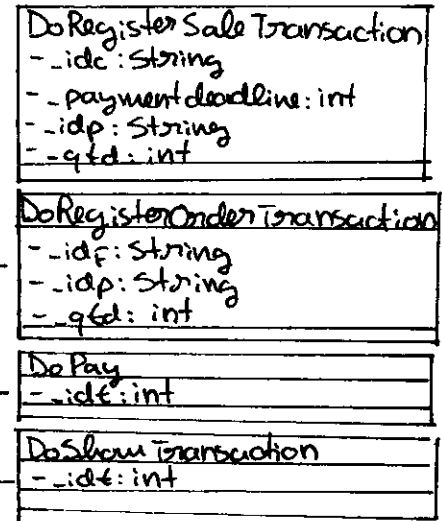 DoRegisterSaleTransaction
- _idc: String
- _paymentdeadline: int
- _idp: String
- _qtd: int
DoRegisterOrderTransaction
- _idf: String
- _idp: String
- _qtd: int
DoPay
- _idt: int
DoShowTransaction
- _idt: int